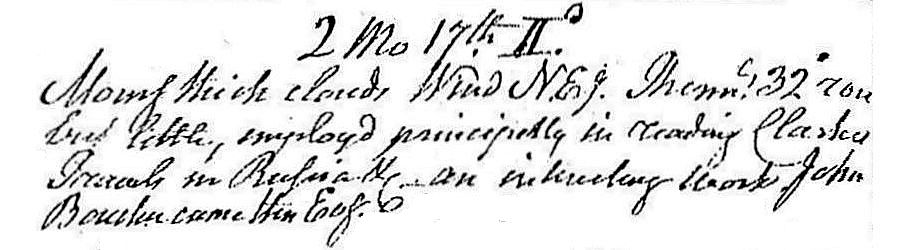 2 Mo 17th II.d
Morng thick clouds Wind N.Ely. Thermr. 32° rose
but little, employd principally in reading Clarkes
Travels in Russia &c an interesting work John
came this Eveg.